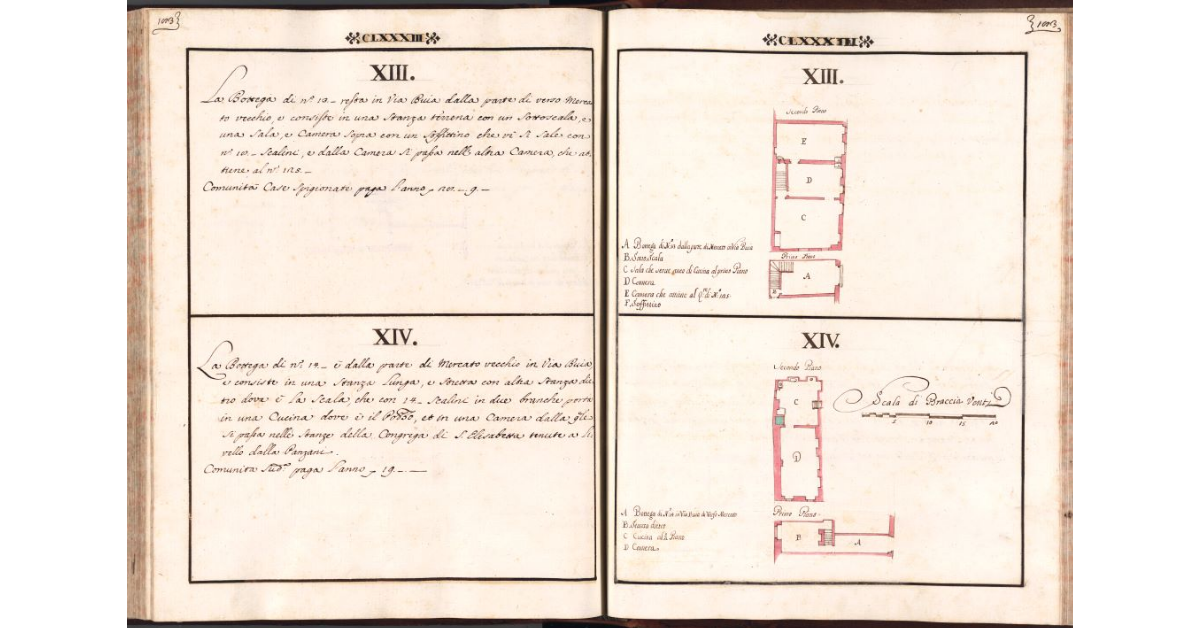 1003
CLXXXIII
XIII.
La Bottega di n.º 13 – resta in Via Buia dalla parte di verso Merca
to vecchio, e consiste in una Stanza terrena con un Sottoscala, e
una Sala, e Camera sopra con un Soffittino che vi si Sale con
n.º 10 – Scalini, e dalla Camera si passa nell altra Camera, che at
tiene al n.º 128 –
Comunità Case Spigionate paga l'anno
XIV.
La Bottega di n.º 14 – è dalla parte di Mercato vecchio in Via Buia
e consiste in una Stanza lunga, e stretta con altra Stanza di
tro dove è la Scala che con 14 – Scalini in due branche porta
in una Cucina dove è il Pozzo, et in una Camera dalla qle
si passa nelle Stanze della Congrega di S. Elisabetta tenute a li
vello dalla Panzani.
Comunità Sud.ª paga l'anno – 19 –
1003
CLXXXIII
XIII.
Secondo Piano
E
D
C
A Bottega di N.º 13 dalla parte di Mercato in Via Buia
B. Sotto Scala
C Sala che serve di Cucina al primo Piano
D Camera
E Camera che attiene al
F. Soffittino
Primo Piano
A
B
XIV.
Secondo Piano
C
D
Scala di Braccia Venti
5 10 15 20
A Bottega di N.º 14 in Via Buia di Mercato
B. Stanza dietro
C Cucina al Piano
D Camera
Primo Piano
B
A